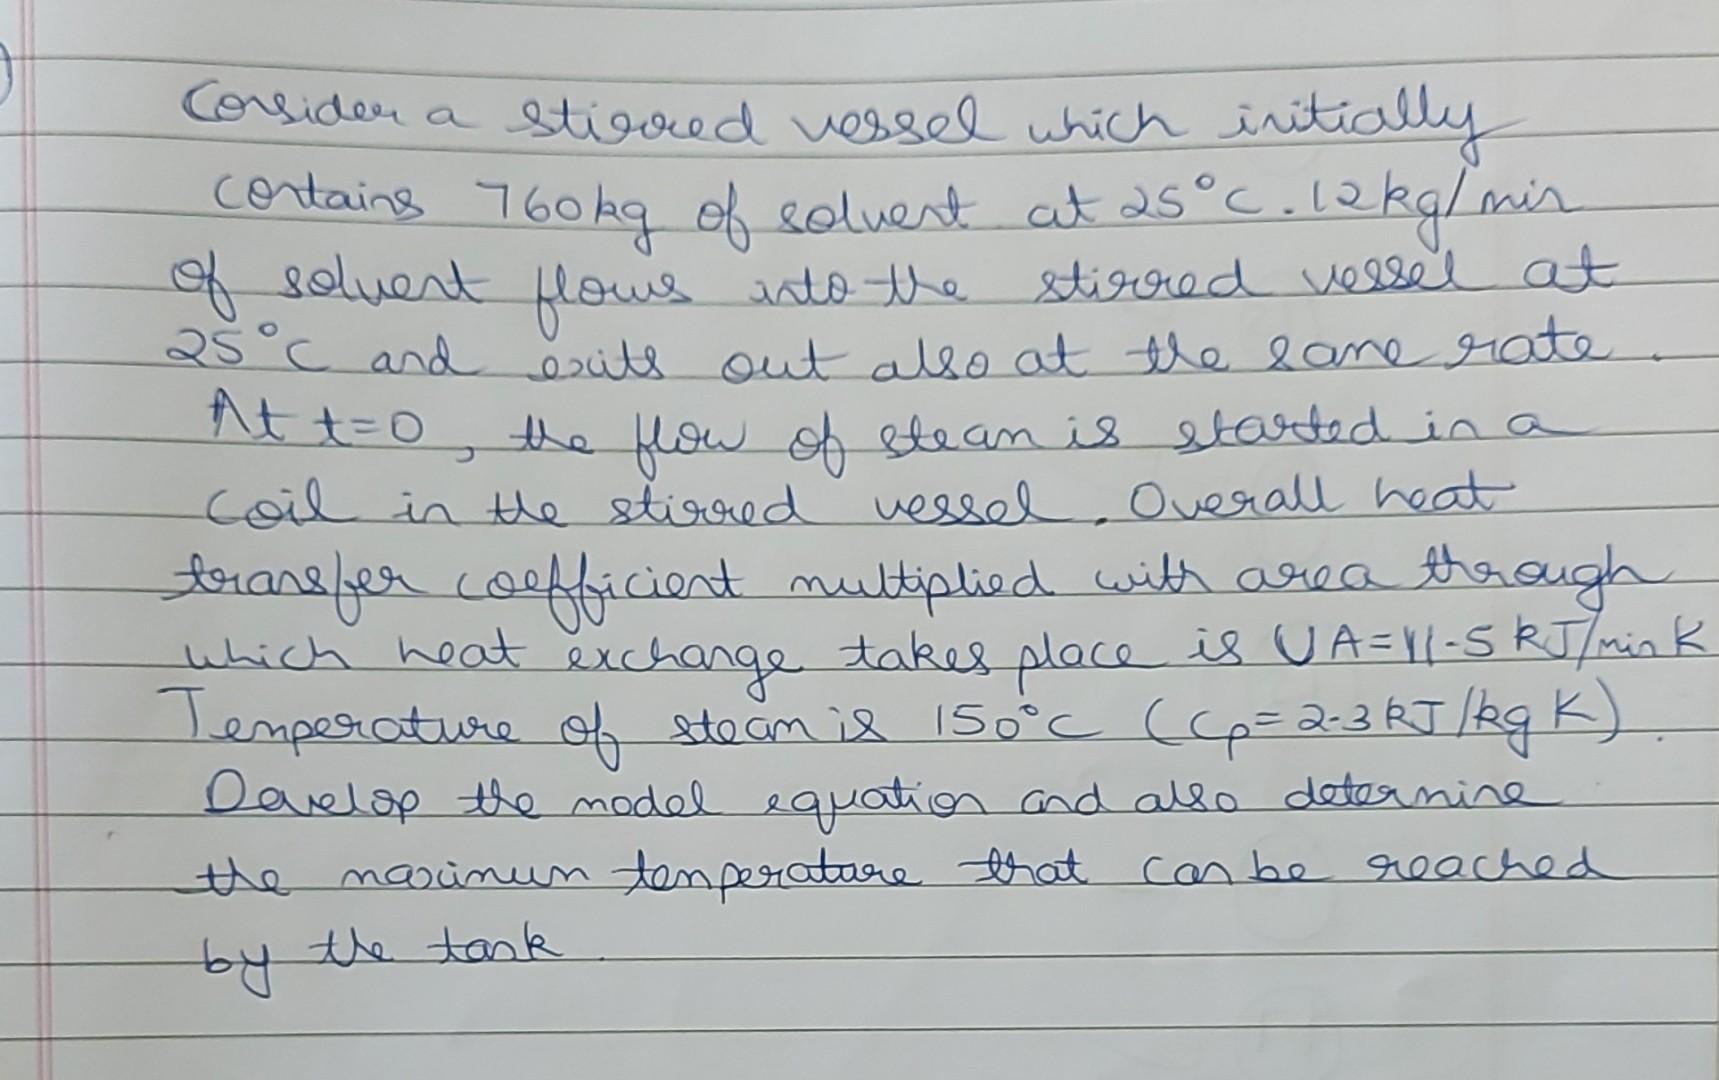 Consider a stirred vessel which initially
contains 760kg of solvent at 25°C. 12kg/min
of solvent flows into the stirred vessel at
25°C and exits out also at the same rate.
At t=0, the flow of steam is started in a
coil in the stirred vessel. Overall heat
transfer coefficient multiplied with area through
which heat exchange takes place is UA=11.5 kJ/min K
Temperature of steam is 150°C (Cp=2.3 kJ/kg K).
Develop the model equation and also determine
the maximum temperature that can be reached
by the tank.